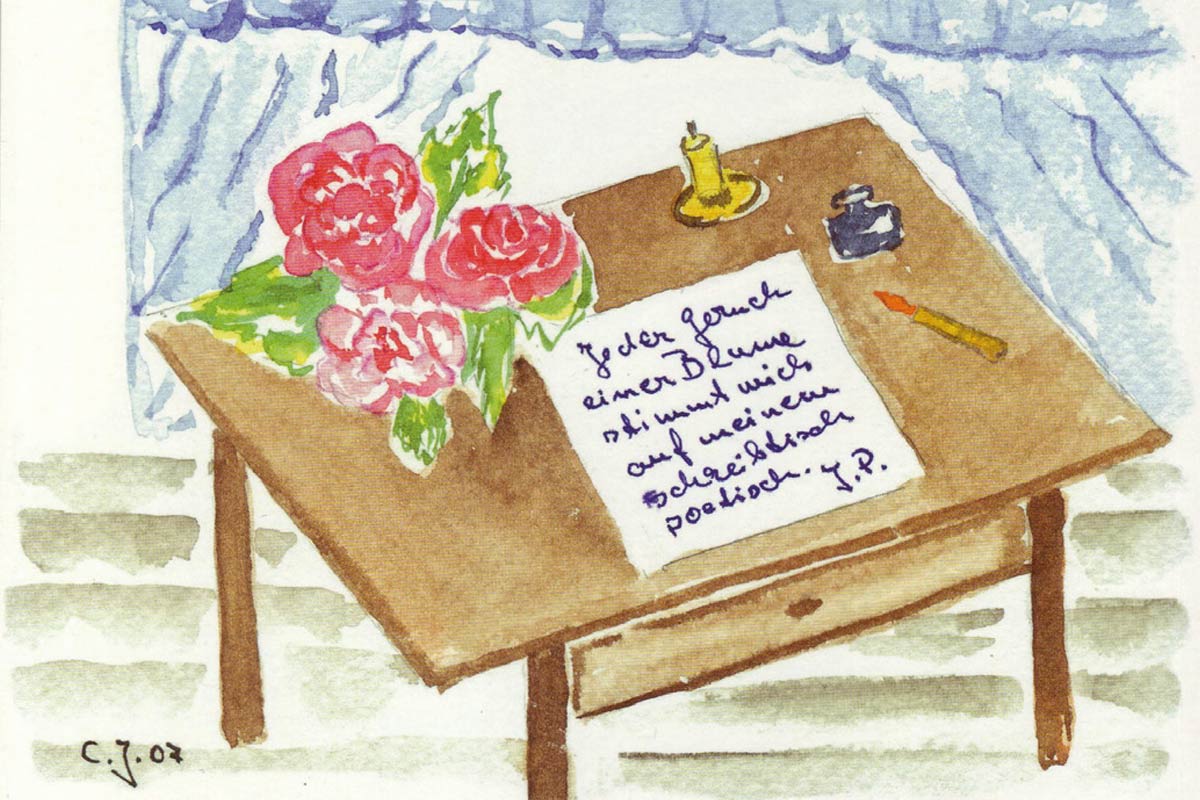 Jeder Geruch
einer Blume
stimmt mich
auf meinem
schreibtisch
poetisch. J.P.
C.J.07